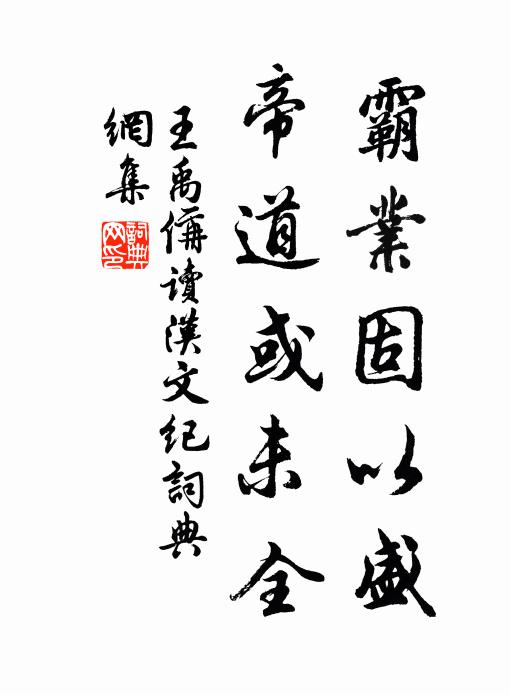 霸業固以盛
帝道或未全
王禹偁讀漢文紀詞典
網集
詞典
網印